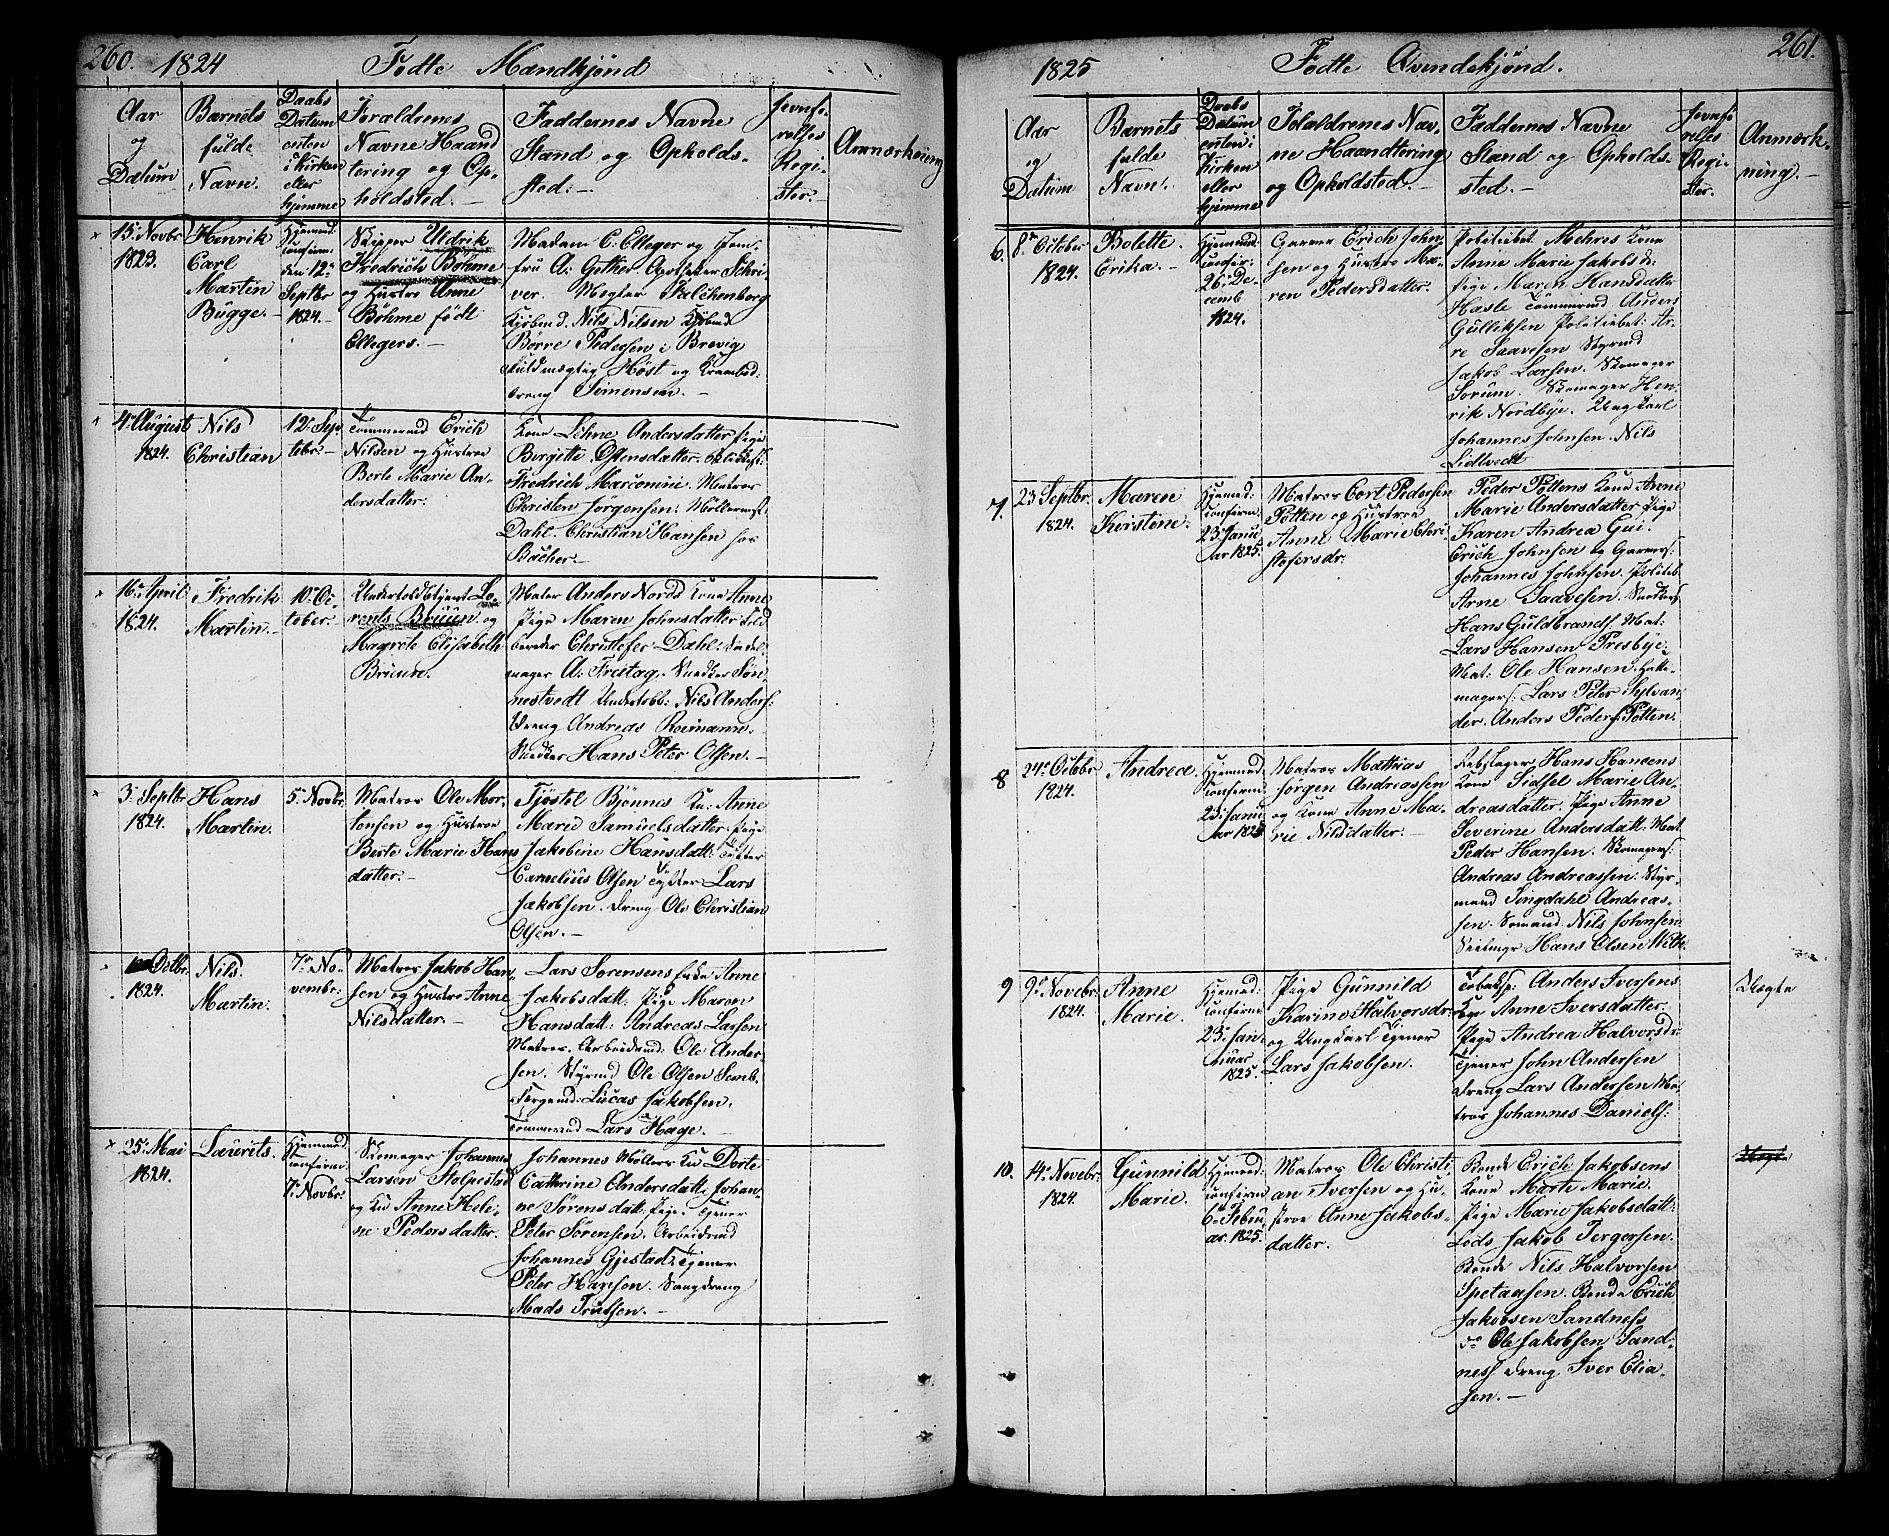 260. 1824 Fødte Mandkjønd
Aar
og
Datum
Barnets
fulde
Navn.
Daabs
Datum
enten
i Kirken
eller
hjemme
Forældrenes
Navne Haand
tering og Op-
holdsted. —
Faddernes Navne
Stand og Opholds-
sted: —
Jevnfø-
relses
Regi-
ster. —
Anmærkning
15de Novbr
1823.
Henrik
Carl
Martin
Bugge. —
Hjemmed:
Confirm
den 12te
Septbr
1824. —
Skipper Uldrik
Fredrich Bøhme
og Hustro Anne
Bøhme født
Ellegers. —
Madam C: Elleger og Jom-
fru A: Gether
ver. Megler Falchenborg
Kjøbmd. Nils Nilsen Kjøbmd
Børre Pedersen i Brevig
fuldmægtig Høst og Krambod
dreng Simensen. —
4de August
1824.
Nils
Christian
12te Sep-
tebr. —
Tømmermd Erich
Nilsen og Hustroe
Berte Marie An-
dersdatter.
Kone Lehne Andersdatter Pige
Birgitte Ostensdatter.
Fredrich Marconini. Matros
Christen Jørgensen. Møllermst.
Dahl. Christian Hansen hos
Bacher. —
16de April
1824.
Fredrik
Martin. —
10de Oc-
tober. —
Undertoldbetjent Lo-
rents Bruun og
Magrete Elisabeth
Bruun.
Maler Anders Nordd Kone Anne
Pige Maren Johnsdatter Feld
bereder Christofer Dahl: Sadel
mager A: Freitag. Snedker Søn-
nestvedt Undertoldb: Nils Anders:
Dreng Andreas Reimann.
Snedker Hans Peter Olsen. —
3de Septbr
1824.
Hans
Martin.
5te Novbr.
Matros Ole Mor-
tensen og Hustroe
Berte Marie Hans
datter. —
Tjøstel Bjønnes Ku: Anne
Marie Samuelsdatter. Pige
Jakobine Hansdatt:
Carnelius Olsen Lars
Jakobsen. Dreng Ole Christian
Olsen. —
Octbr.
1824.
Nils.
Martin.
7de No-
vember:
Matros Jakob Han-
sen og Hustro Anne
Nilsdatter. —
Lars Sørensens Enke Anne
Jakobsdatt: Pige Maren
Hansdatt: Andreas Larsen
Matros. Arbeidsmd: Ole Ander-
sen. Styrmd Ole Olsen Semb.
Færgemd: Lucas Jakobsen.
Tømmermd Lars Hage. —
25de Mai
1824.
Laurits.
Hjemmed:
Confirm:
7de Novbr:
Skomager Johannes
Larsen Stolpestad
og Ku Anne Hele-
ne Pedersdatter.
Johannes Møllers Ku Dorte
Cathrine Andersdatt: Johan-
ne Sørensdatt: Pige. Tjener
Peter Sørensen. Arbeidsmd
Johannes Gjestad. Tjener
Peter Hansen. Dreng
Mads Trulsen. —
1825 Fødte Qvindekjønd. 261.
Aar
og
Datum
Barnets
fulde
Navn.
Daabs
Datum
enten i
Kirken
eller
hjemme
Foræeldrenes Nav-
ne Haandtering
og Opholdsted. —
Faddernes Navne
Stand og Opholds-
sted. —
Jevnfø
relses
Regi-
ster.
Anmærk-
ning. —
6. 8de October
1824.
Bolette
Erika. —
Hjemmed:
Confir:
26de De-
cemb
1824.
Garver Erich John-
sen og Hustroe Ma-
ren Pedersdatter.
Politiebet. Mehres Kone
Anne Marie Jakobsdr.
Pige Maren Hansdatter
Hasle Tømmermd Anders
Gulliksen Politiebet: Ar-
ne Saavesen Styrmd
Jakob Larsen. Skomager
Sørum. Skomager Hen-
rik Nordbye. Ungkarl
Johannes Johnsen. Nils
Lidtvedt
7. 23 Septbr.
1824.
Maren
Kirstine.
Hjemmed:
Confirm:
23de Janu
ar 1825.
Matros Cort Pedersen
Potten og Hustroe
Anne Marie Chri-
stofersdr:
Peder Pottens Kone Anne
Marie Andersdatter Pige
Karen Andrea Gui.
Erich Johnsen og Garvers:
Johannes Johnsen. Politieb:
Arne Saavesen. Snedkers:
Hans Guldbrands: Mat:
Lars Hansen Presbye.
Mat: Ole Hansen.
magers: Lars Peter Sylvan
der. Anders Peders: Potten.
8 24de Octobr
1824.
Andrea.
Hjemmed.
Confirm:
23de Janu
ar 1825
Matros Mathias
Jørgen Andreassen
og Kone Anne Ma-
rie Nilsdatter. —
Rebslager Hans Hansens
Kone Sidsel Marie An-
dreasdatter. Pige Anne
Severine Andersdatt: Mat.
Peder Hansen. Skomagers:
Andreas Andreassen: Styr-
mand Jongdahl Andreas-
sen. Sømand Nils Johnsen
Seilmgr Hans Olsen With.
9 9de Novebr:
1824.
Anne
Marie.
Hjemmed:
Confirm
23de Jan-
uar
1825.
Pige Gunnild
Karine Halvorsdr:
og Ungkarl Tjener
Lars Jakobsen.
Anders Iversens
Kge Anne Iversdatter
Pige Andrea Halvorsdr:
Tjener John Andersen
Dreng Lars Andersen Ma-
tros Johannes Daniels:
Uægte
10. 14de Novebr.
1824.
Gunnild
Marie.
Hjemmed:
Confirm
6te Febru
ar. 1825.
Matros Ole Christi
an Iversen og Hu-
stroe Anne Jakobs-
datter.
Bonde Erich Jakobsens
Kone Marte Marie.
Pige Marie Jakobsdatt:
Lods Jakob Tergersen.
Bonde Nils Halvorsen
Spetaasen. Bonde Erich
Jakobsen Sandness
do Ole Jakobsen Sand-
ness Dreng Iver Elia-
sen. —